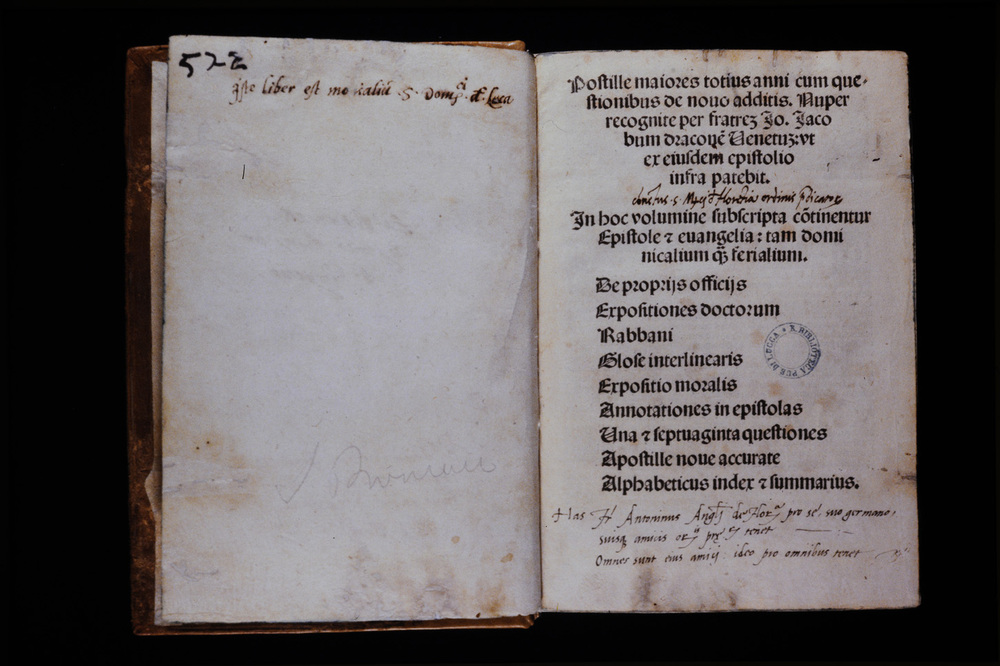 522
iste liber est monialiū S. Domi̅ci d. Luca
Postille maiores totius anni cum que-
stionibus de nouo additis. Nuper
recognite per fratrez Jo. Jaco
bum draconē Uenetuz: vt
ex eiusdem epistolio
infra patebit.
In hoc volumine subscripta cōtinentur
Epistole ⁊ euangelia: tam domi
nicalium ꝙ̄ ferialium.
De proprijs officijs
Expositiones doctorum
Rabbani
Glose interlinearis
Expositio moralis
Annotationes in epistolas
Una ⁊ septuaginta questiones
Apostille noue accurate
Alphabeticus index ⁊ summarius.
R. BIBLIOTECA PUB. DI LUCCA
Has Fr Antoninus Angli de Flor. pro se, suo germano,
suisq amicis tenet
Omnes sunt eius amici: ideo pro omnibus tenet